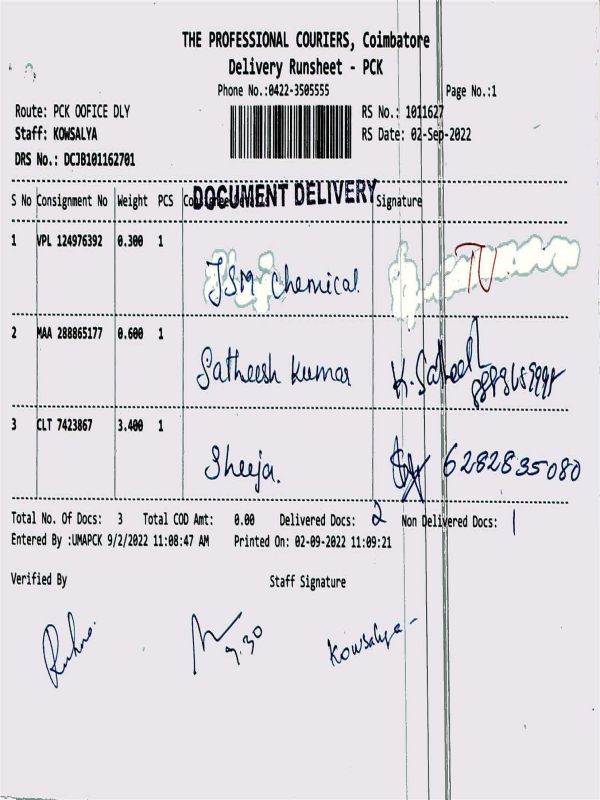 THE PROFESSIONAL COURIERS, Coimbatore
Delivery Runsheet - PCK
Phone No.:0422-3505555 Page No.:1
Route: PCK OOFICE DLY RS No.: 1011627
Staff: KOWSALYA RS Date: 02-Sep-2022
DRS No.: DCJB101162701
DOCUMENT DELIVERY
S No Consignment No Weight PCS Consignee Details Signature
1 VPL 124976392 0.300 1
JSM Chemical TU
2 MAA 288865177 0.600 1
Satheesh Kumar K.
3 CLT 7423867 3.400 1
Sheeja. 6282835080
Total No. Of Docs: 3 Total COD Amt: 0.00 Delivered Docs: 2 Non Delivered Docs: 1
Entered By :UMAPCK 9/2/2022 11:08:47 AM Printed On: 02-09-2022 11:09:21
Verified By Staff Signature
9.30 Kowsalya